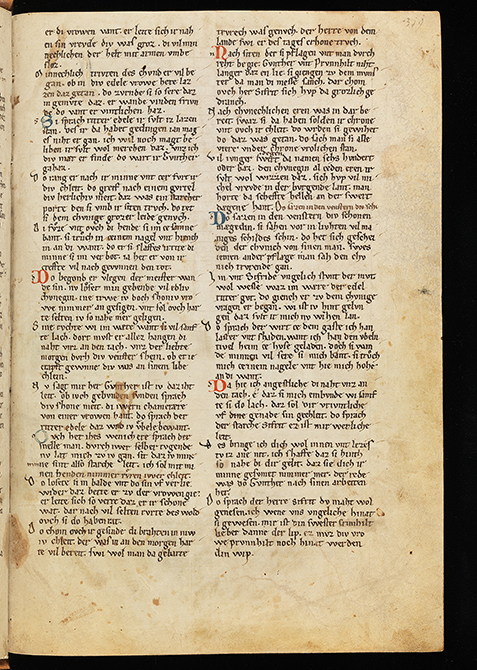 er di vrowen vant. er leite sich nah
en sin vreude div was groz. di vil min
nechlichen der helt mit armen vmbe
sloz.
Minnechlich trvten des chvnd er vil be
gan. ob in div edele vrowe here laz
zen daz getan. do zvrnde si so sere daz
in gemvte daz. er wande vinden frivn
de do vant er vintlichen haz.
Si sprach ritter edele ir svlt iz lazen
stan. des ir da habet gedingen ian mag
es niht er gan. ich wil noch maget be
liben ir svlt wol merchen daz. vnz ich
div mær er finde do wart ir Gvnther
gehaz.
Do rang er nach ir minne vnt zer fvrt ir
div chleit. do greif nach einem gvrtel
div herliche meit. daz was ein starcher
porte den si vmb ir siten trvch. do tet
si dem chvnige grozer leide genvch.
Di fvze vnt ovch di hende si im ze samne
bant. si trvch in zeinem nagel vnt hiench
in an di want. do er si slaffes irrte di
minne si im ver bot. ia het er von ir
chrefte vil nach gewnnen den tot.
Do begond er vlegen der meister wan
de sin. nv loset min gebende vil edeliv
chvnegin. ine trwe iv doch schoniv vro
we nimmer an gesigen. vnt sol ovch har
te selten iv so nahe mer geligen.
Sine rvchte wi im wære want si vil sanf
te lach. dort mvst er allez hangen di
naht vnz an den tach. vnz der liehte
morgen dvrh div venster schein. ob er ie
chraft gewnne div was an sinem libe
chlein.
Nv sagt mir her Gvnther ist iv daz iht
leit. ob ivch gebvnden vindent sprach
div schone meit. di iwern chamerære
von einer vrowen hant. do sprach der
ritter edele daz wrd iv vbele bewant.
Ovch het ihes wenich ere sprach der
snelle man. dvrch iwer selber tvgende
nv lat mich zv iv gan. sit daz iv mine
minne sint also starche leit. ich sol mit mi
nen henden nimmer rvren iwer chleit.
Do loste si in balde vnt do sin vf verliez.
wider daz bette er zv der vrowen gie.
er leite sich so verre daz er ir schone
wat. dar nach vil selten rvrte des wold
ovch si do haben rat.
Do chom ovch ir gesinde di brahten in niw
iv chleit. der was in an den morgen har
te vil bereit. swi wol man da gebarte
trvrech was genvch. der herre von dem
lande swi er des tages chrone trvch.
Nach siten der si pflagen vnt man dvrch
reht begie. Gvnther vnt Prvnhilt niht
langer daz en lie. si giengen zv dem mvn
ster da man di messe sanch. dar chom
ovch her Sifrit sich hvp da grozlich ge
dranch.
Nach chvnechlichen eren was in dar be
reit. swaz si da haben solden ir chrone
vnt ovch ir chleit. do wrden si gewihet
do daz was getan. do sach man si alle
viere vnder chrone vrolichen stan.
Vil ivnger swert da namen sehs hvndert
oder baz. den chvnegen al ceden eren ir
svlt wol wizzen daz. sich hvp vil mi
chel vrevde in der bvrgende lant. man
horte da schefte hellen an der swert
degene hant.
Do sazen in den venstern div schonen
magedin. si sahen vor in livhten vil ma
niges schildes schin. do het sich gescheiden
der chvnech von sinen man. swes
iemen ander pflæge man sah den chv
nich trvrende gan.
Im vnt Sifride vngelich stvnt der mvt
wol wesse waz im wære der edel
ritter gvt. do giench er zv dem chvnige
vragen er began. wi ist iv hint gelvn
gen daz svlt ir mich nv wizzen lan.
Do sprach der wirt ze dem gaste ich han
laster vnt schaden. want ich han den vbeln
tivel heim ze hvse geladen. do ich si wan
de minnen vil sere si mich bant. si trvch
mich zeinem nagele vnt hie mich hohe
an di want.
Da hie ich angestliche di naht vnz an
den tach. e daz si mich enbvnde wi sanf
te si do lach. daz sol dir vrivntliche
vf die genade sin gechleit. do sprach
der starche Sifrit ez ist mir werliche
leit.
Des bringe ich dich wol innen vnt lezes
tv iz ane nit. ich schaffe daz si hinte
so nahe bi dir gelit. daz sie dich ir
minne gesvmet nimmer mer. der rede
was do Gvnther nach sinen arbeiten
her.
Do sprach der herre Sifrit dv maht wol
genesen. ich wene vns vngeliche hinat
si gewesen. mir ist din swester Crimhilt
lieber danne der lip. ez mvz div vro
we Prvnhilt noch hinat werden
din wip.